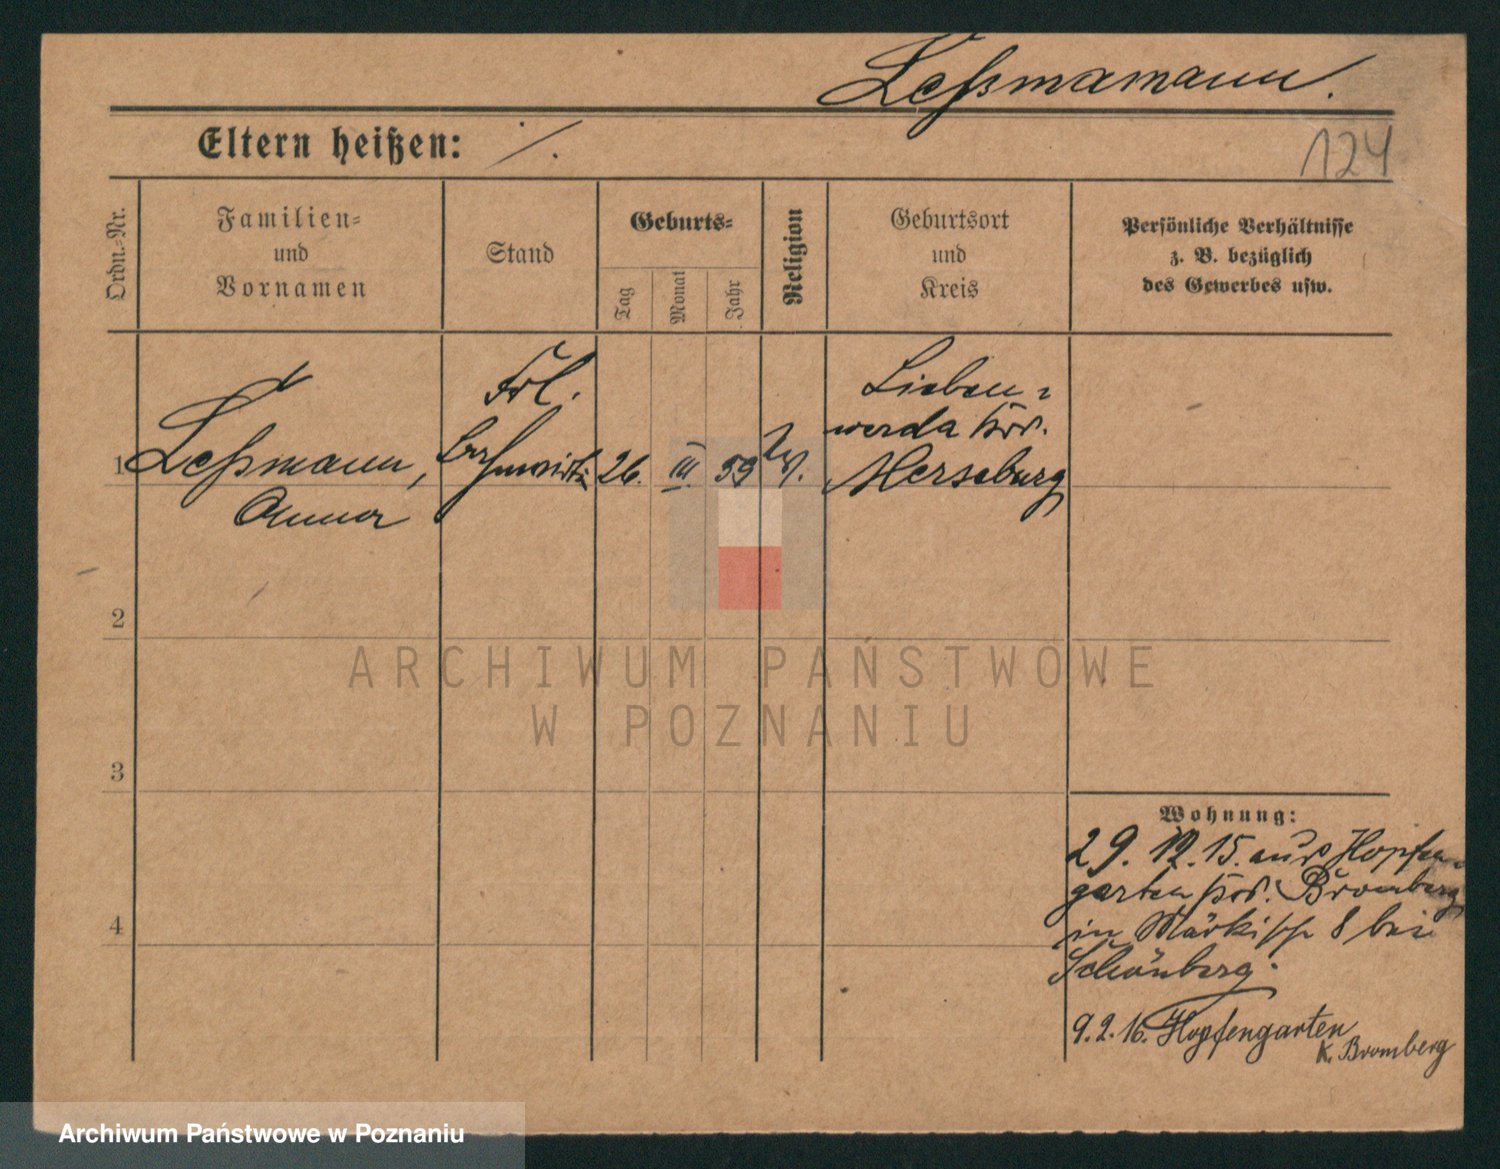 Leßmamann.
Eltern heißen: ·/.
124
Ordn.-Nr.
Familien-
und
Vornamen
Stand
Geburts-
Tag
Monat
Jahr
Religion
Geburtsort
und
Kreis
Persönliche Verhältnisse
z. B. bezüglich
des Gewerbes usw.
1
Leßmann,
Anna
Frl.
26.
III.
59
ev.
Lieben-
werda Krs.
Merseburg
2
3
4
Wohnung:
29. 12. 15. aus Hopfen-
garten Krs. Bromberg
in Märkische 8 bei
Schönberg.
9. 2. 16. Hopfengarten
K. Bromberg
ARCHIWUM PAŃSTWOWE
W POZNANIU
Archiwum Państwowe w Poznaniu